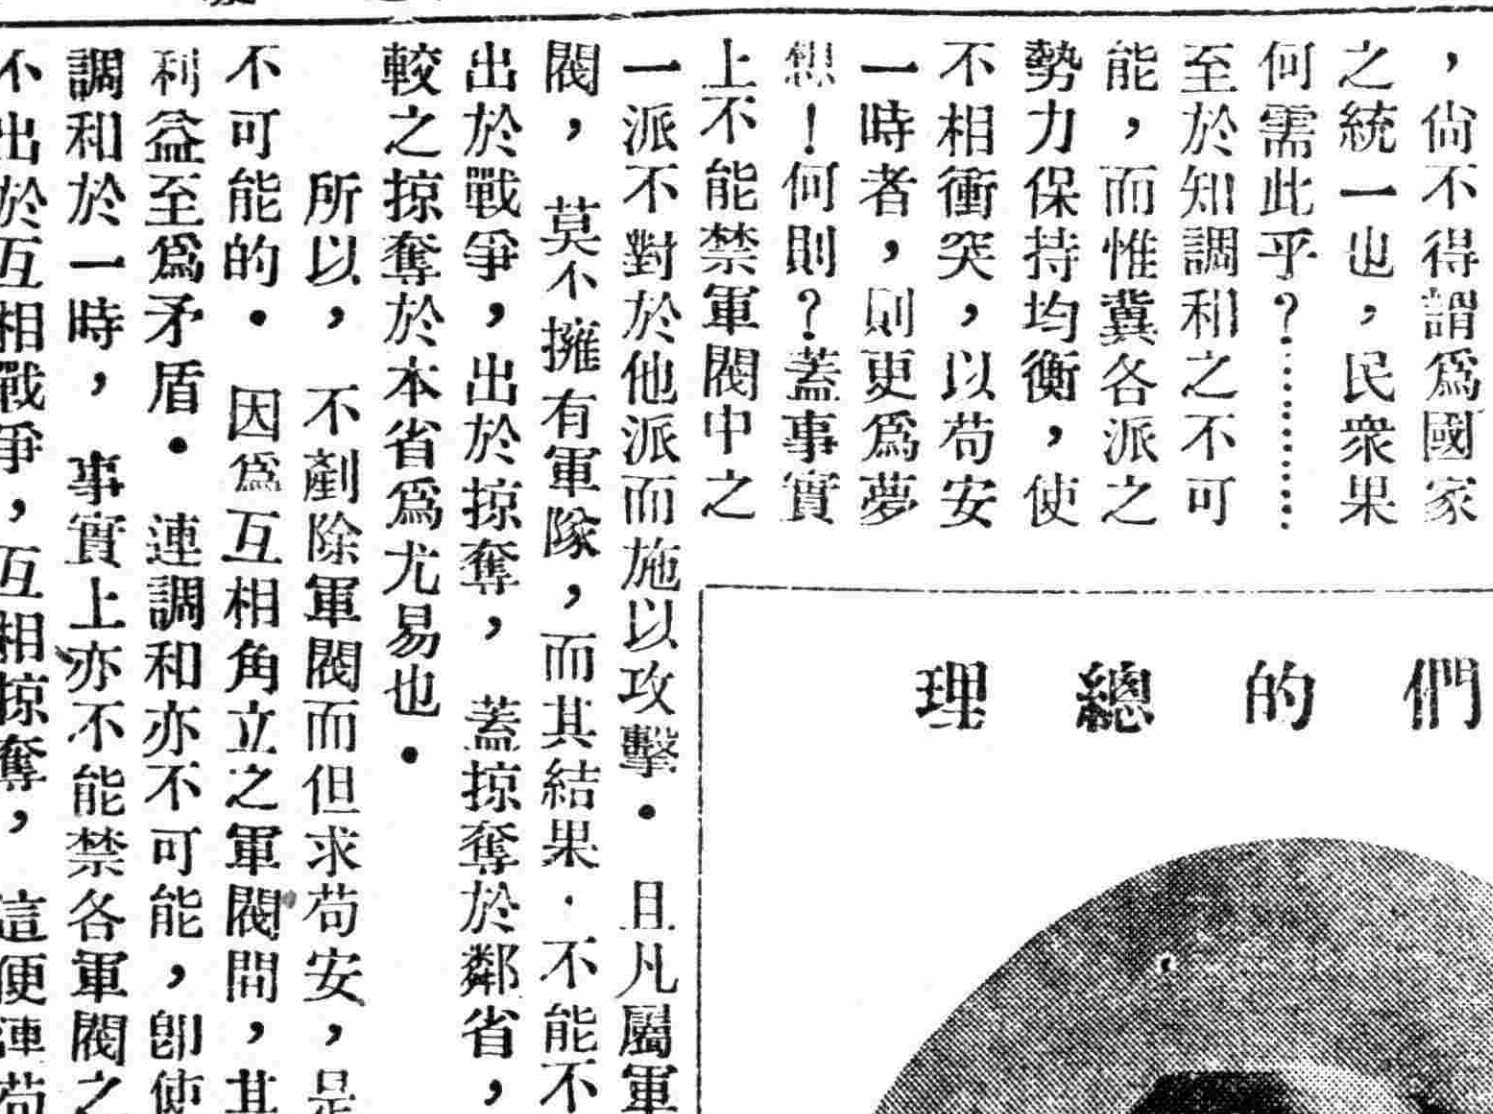 ，尙不得謂爲國家
之統一也，民衆果
何需此乎？………
至於知調和之不可
能，而惟冀各派之
勢力保持均衡，使
不相衝突，以苟安
一時者，則更爲夢
想！何則？蓋事實
上不能禁軍閥中之
一派不對於他派而施以攻擊．且凡屬軍
閥，莫不擁有軍隊，而其結果．不能不
出於戰爭，出於掠奪，蓋掠奪於鄰省，
較之掠奪於本省爲尤易也．
所以，不剷除軍閥而但求苟安，是
不可能的．因爲互相角立之軍閥間，其
利益至爲矛盾．連調和亦不可能，卽使
調和於一時，事實上亦不能禁各軍閥之
不出於互相戰爭，互相掠奪，這便連苟
們的總理